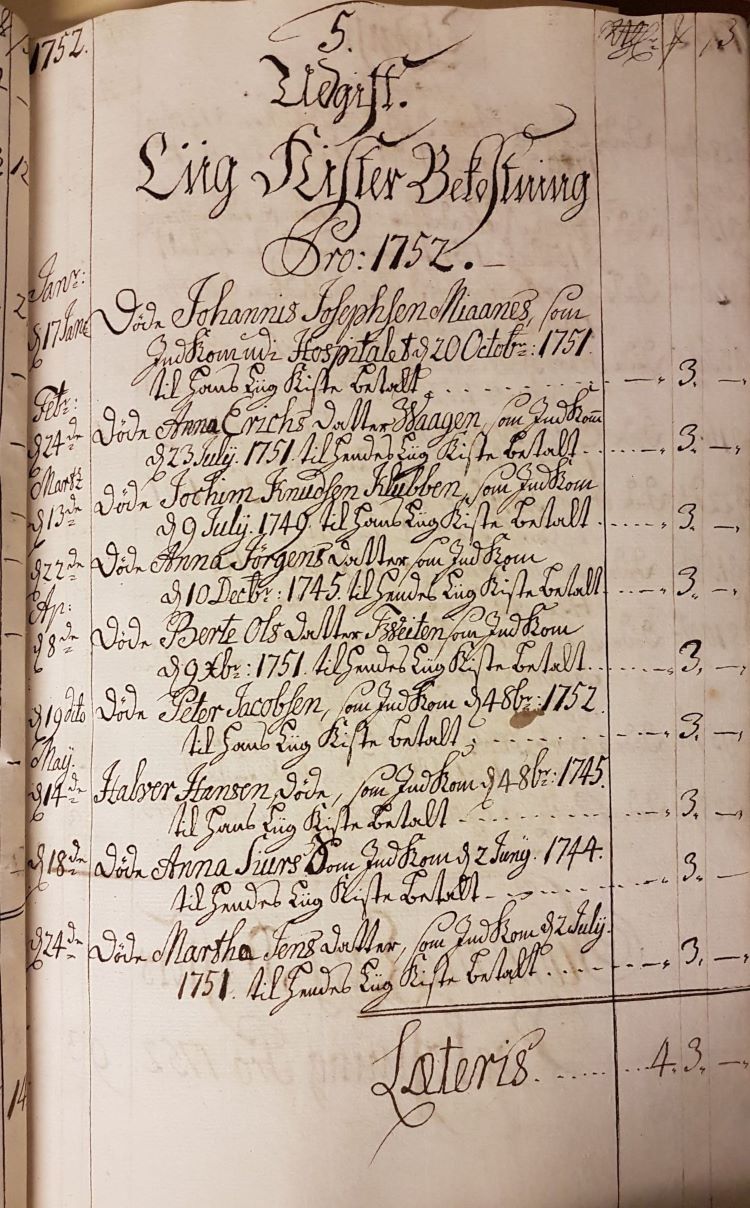 1752.
5.
Udgift.
Liig Kister Bekostning
Pro: 1752.
Janr:
d 17 Janr Døde Johannis Josephsen Miaanes, som
IndKom udi Hospitalet d 20 Octobr: 1751.
til Hans Liig Kiste betalt, „ 3. —
Febr:
d 24 de Døde Anna Erichs datter Waagen, som IndKom
d 23 July. 1751. til hendes Liig Kiste betalt „ 3. —
Martz
d 13 de Døde Jochim Knudsen Klubben, som IndKom
d 9 July. 1749. til Hans Liig Kiste betalt „ 3. —
d 22 de Døde Anna Jørgens datter som IndKom
d 10 Decbr: 1745. til hendes Liig Kiste betalt „ 3. —
Ap:
d 8 de Døde Berte Ols datter Tveiten som IndKom
d 9 Xbr: 1751. til hendes Liig Kiste betalt „ 3. —
d 19 dito Døde Peter Jacobsen, som IndKom d 4 8br: 1752.
til Hans Liig Kiste betalt, „ 3. —
May.
d 14 de Halver Hansen døde, som IndKom d 4 8br: 1745.
til Hans Liig Kiste betalt „ 3. —
d 18 de Døde Anna Siurs D som IndKom d 2 Juny. 1744.
til hendes Liig Kiste betalt „ 3. —
d 24 de Døde Martha Jens datter, som IndKom d 2 July.
1751. til hendes Liig Kiste betalt „ 3. —
Læteris. 4. 3. —